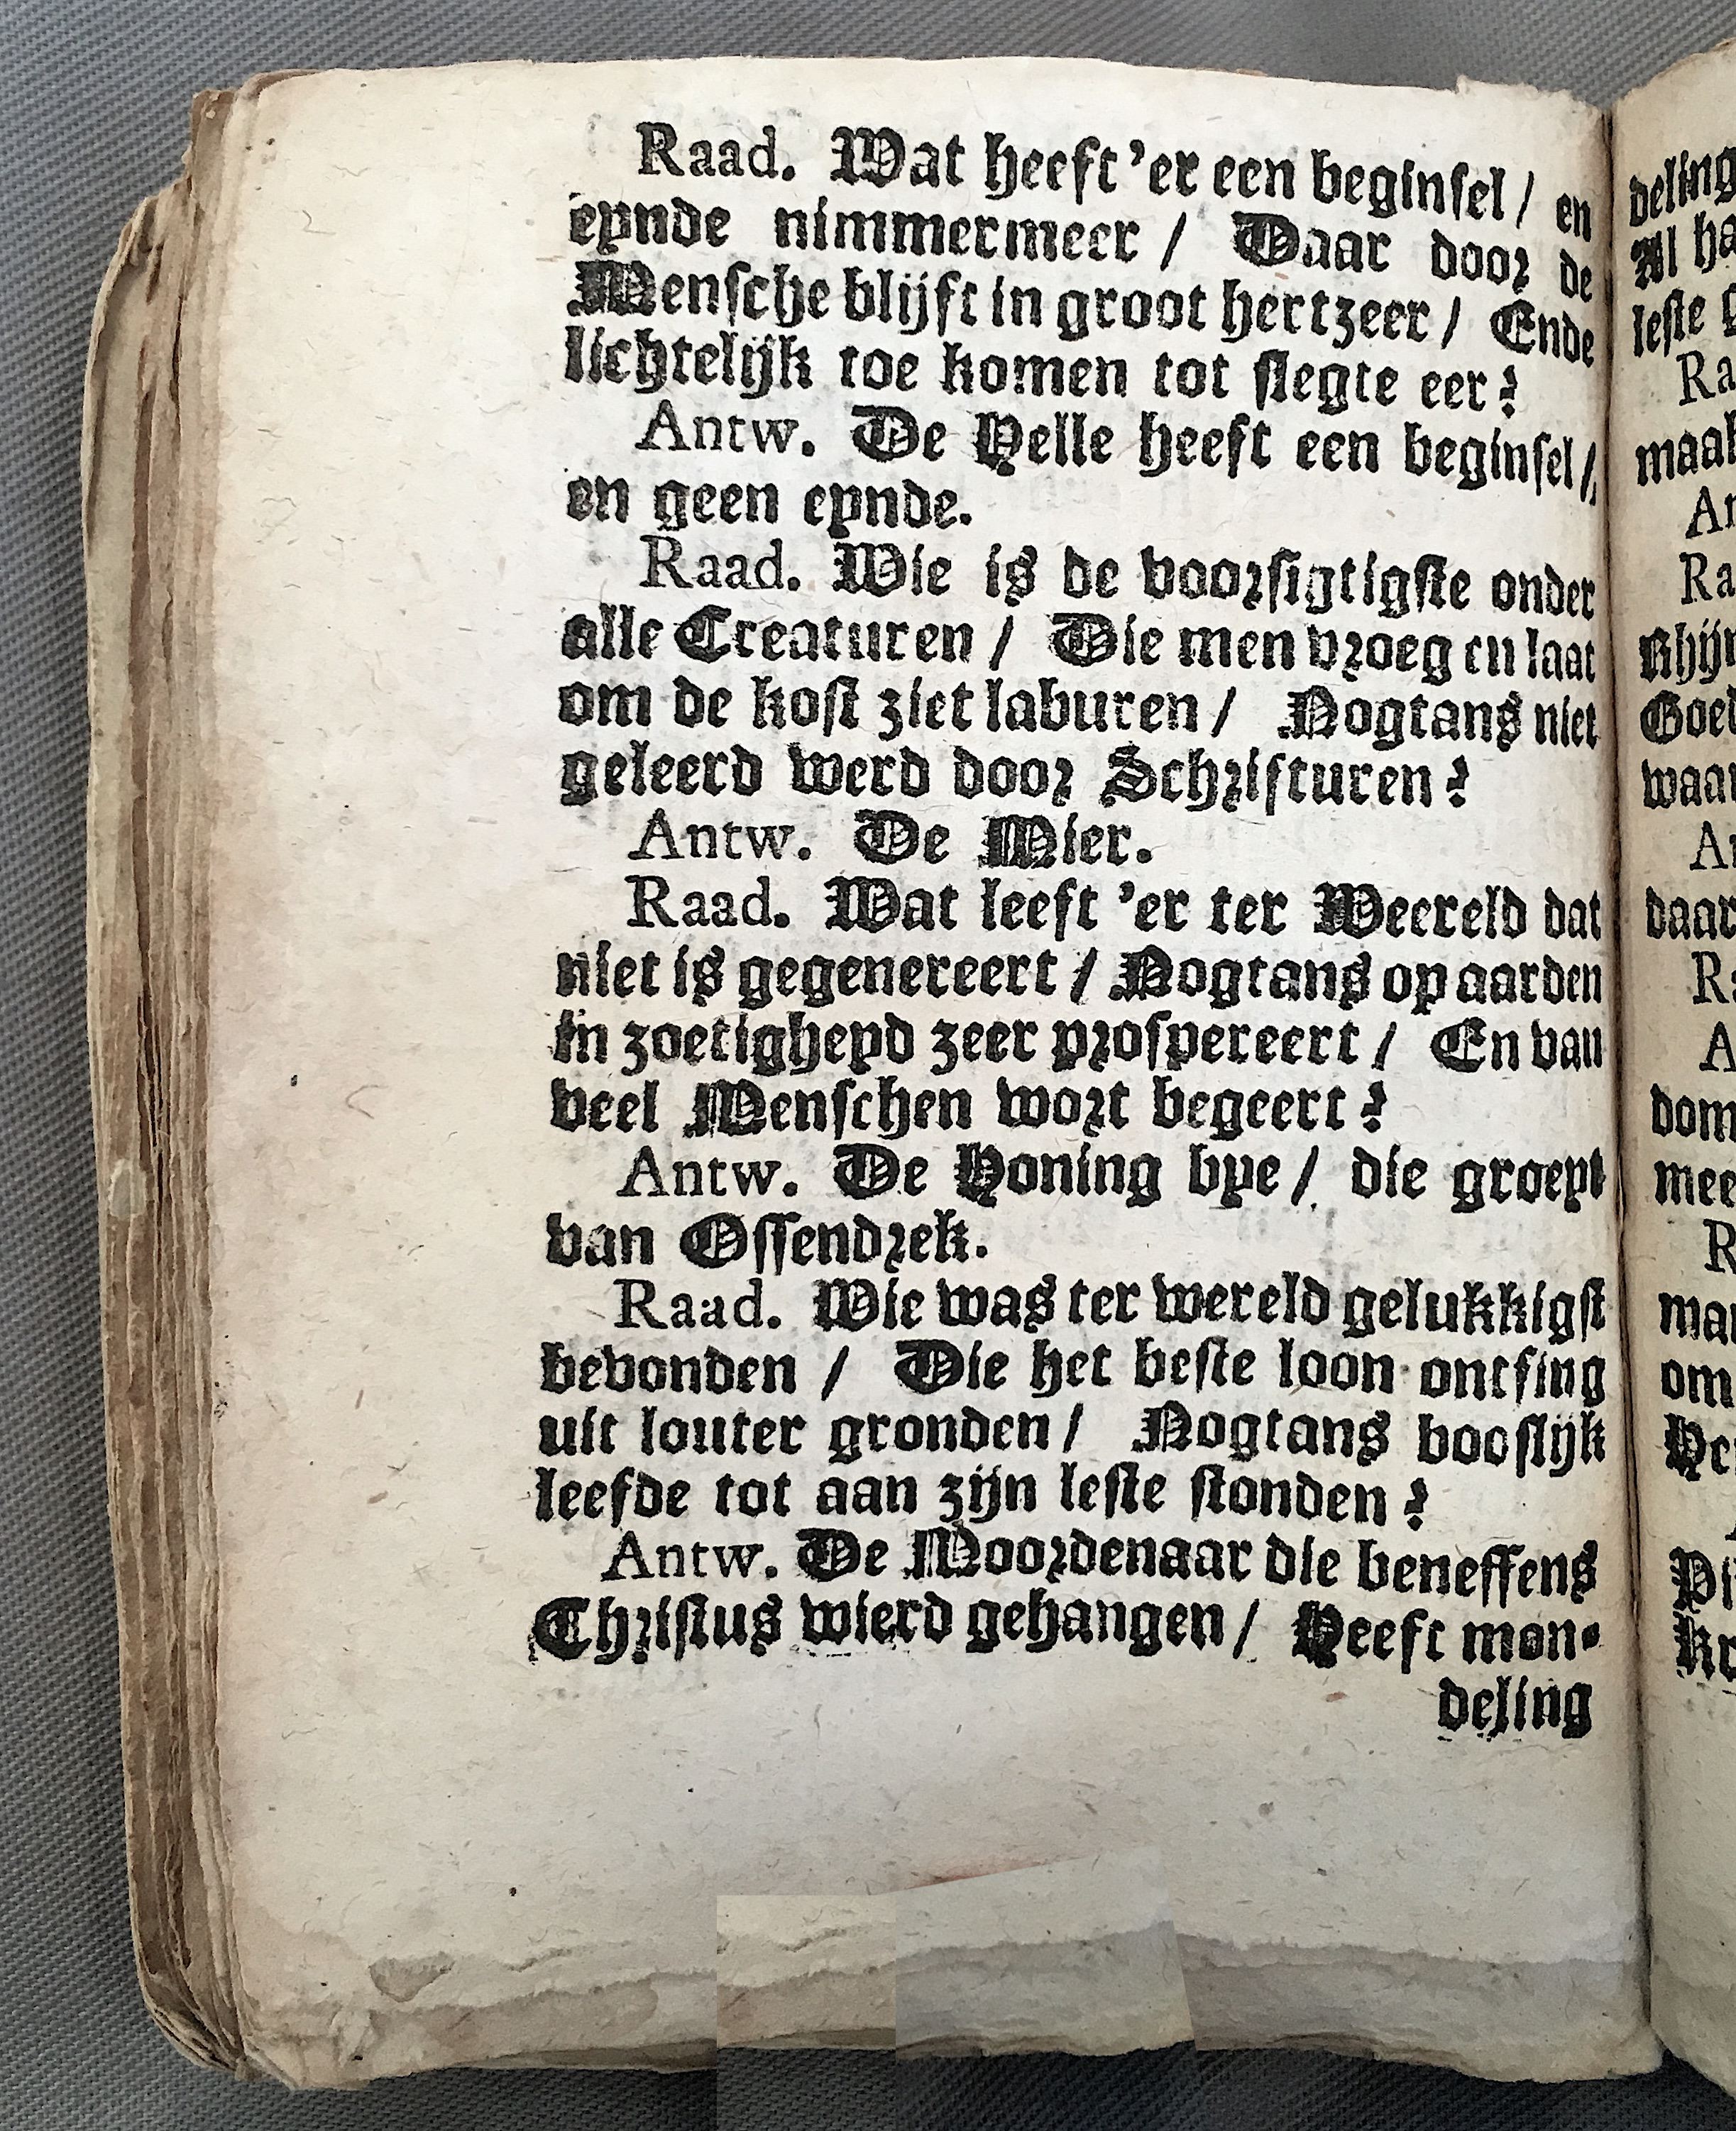 Raad. Wat heeft 'er een beginsel / en
eynde nimmermeer / Daar door de
Mensche blijft in groot hertzeer / Ende
lichtelijk toe komen tot slegte eer?
Antw. De Helle heeft een beginsel /
en geen eynde.
Raad. Wie is de voorsigtigste onder
alle Creaturen / Die men vroeg en laat
om de kost ziet laburen / Nogtans niet
geleerd werd door Schrifturen?
Antw. De Mier.
Raad. Wat leeft 'er ter Weereld dat
niet is gegenereert / Nogtans op aarden
in zoetigheyd zeer prospereert / En van
veel Menschen wort begeert?
Antw. De Honing bye / die groeyt
van Ossendrek.
Raad. Wie was ter wereld gelukkigst
bevonden / Die het beste loon ontfing
uit louter gronden / Nogtans booslijk
leefde tot aan zijn leste stonden?
Antw. De Moordenaar die beneffens
Christus wierd gehangen / Heeft mon-
deling
deling
Al ha
leste g
Ra
maak
An
Ra
Goed
waar
An
daar
Ra
A
dom
mee
R
man
om